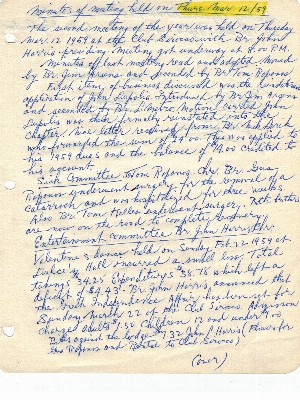 Minutes of meeting held on Thurs Mar 12/59
The second meeting of the year was held on Thursday
Mar. 12 1959 at the Club Sirocco with Br. John
Harris presiding. Meeting got underway at 8:00 P.M.
Minutes of last meeting read and adopted. Moved
by Br. Jim and seconded by Br. Tom Poponos
First item of business discussed was the
application of John Introduced by Br. Jim
and seconded by Br. Motion Carried John
was then formally reinstated into the
Chapter. Nice letter received from Br.
who forwarded the sum of 29.00. This was applied to
his 1959 dues and the balance of 14.00 credited to
his account.
Sick Committee Tom Poponos Chr. Br. Gus
Poponos underwent surgery for the removal of a
Catarrach and was hospitalized for three weeks.
Also Br. Tom underwent surgery. Both brothers
are now on the road to complete recovery.
Entertainment Committee Br. John Harris Chr.
Valentine's Dance held on Sunday Feb. 22 1959 at
Hall incurred a small loss. Total
takings 34.25 Expenditures 38.78 which left a
deficit of Br. John Harris, announced that
the Greek Independence Affair has been set for
Sunday March 22 at the Club Sirocco. Admission
charges adults 1.50 Children 12 and under
Bills against the lodge 7.32 John Harris (Flowers for
Gus Poponos and to Club Sirocco)
(over)